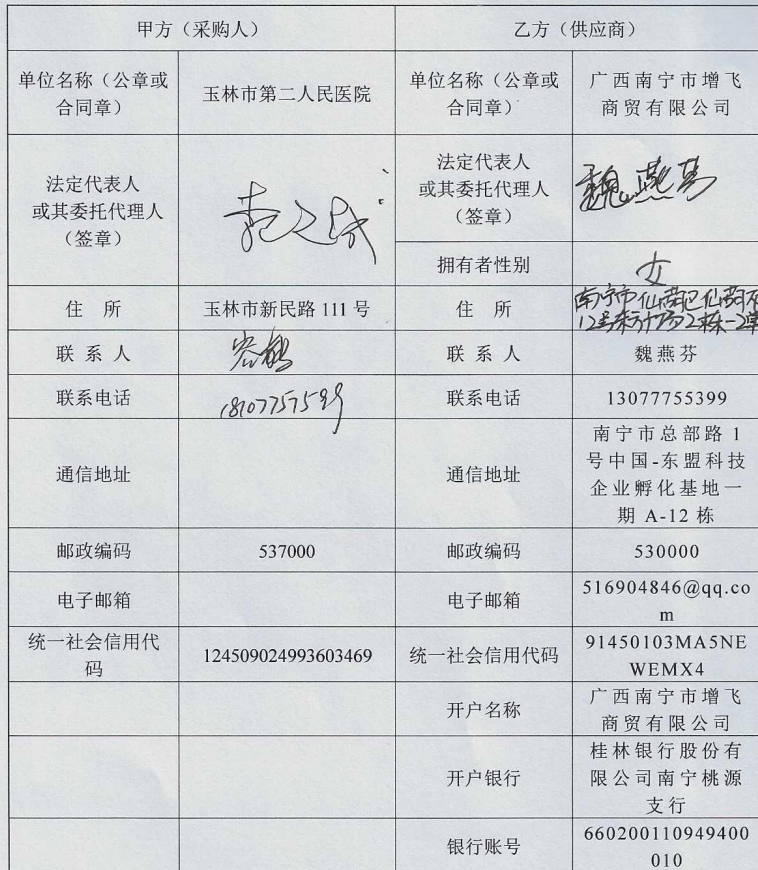 甲方（采购人）
乙方（供应商）
单位名称（公章或
合同章）
玉林市第二人民医院
单位名称（公章或
合同章）
广西南宁市增飞
商贸有限公司
法定代表人
或其委托代理人
（签章）
法定代表人
或其委托代理人
（签章）
魏燕芬
拥有者性别
女
住 所
玉林市新民路 111 号
住 所
南宁市仙葫
12号
2栋一2单
联 系 人
联 系 人
魏燕芬
联系电话
18107757599
联系电话
13077755399
通信地址
通信地址
南宁市总部路 1
号中国-东盟科技
企业孵化基地一
期 A-12 栋
邮政编码
537000
邮政编码
530000
电子邮箱
电子邮箱
516904846@qq.co
m
统一社会信用代
码
124509024993603469
统一社会信用代码
91450103MA5NE
WEMX4
开户名称
广西南宁市增飞
商贸有限公司
开户银行
桂林银行股份有
限公司南宁桃源
支行
银行账号
660200110949400
010